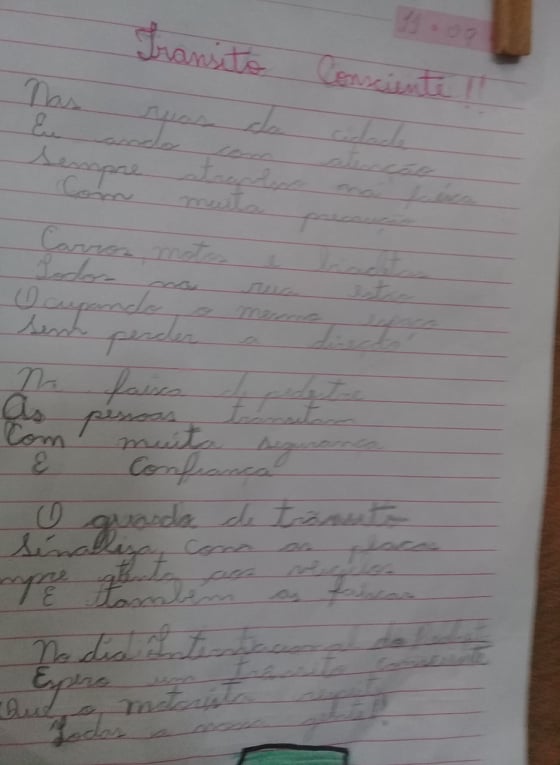 11.09
Transito Consciente!!
Nas ruas da cidade
Eu ando com atenção
Sempre na faixa
Com muita precaução
Carros, motos e bicicletas
Todos na rua estão
Ocupando o mesmo espaço
Sem perder a direção
Na faixa de pedestre
As pessoas transitam
Com muita segurança
E Confiança
O guarda de transito
Sinaliza, como as placas
mpre atento aos veículos
E também as faixas
No dia Internacional do
Espero um transito consciente
Que o motorista respeite
Toda a nossa gente!!